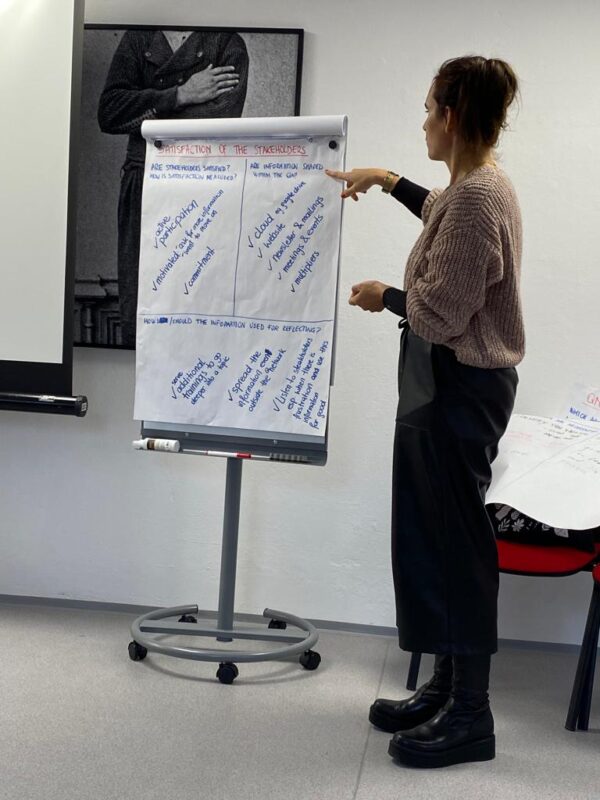 SATISFACTION OF THE STAKEHOLDERS
ARE STAKEHOLDERS SATISFIED?
HOW IS SATISFACTION MEASURED?
✓ active
participation
✓ motivated: ask for more information
want to move on
✓ commitment
ARE INFORMATION SHARED
WITHIN THE GN?
✓ cloud eg google drive
✓ website
✓ newsletter & mailings
✓ meetings & events
✓ multipliers
HOW /SHOULD THE INFORMATION USED FOR REFLECTING?
✓ some
additional
trainings to go
deeper into a topic
✓ spread the
information even
outside the network
✓ Listen to stakeholders
esp when there is
frustration and use this
information
for good